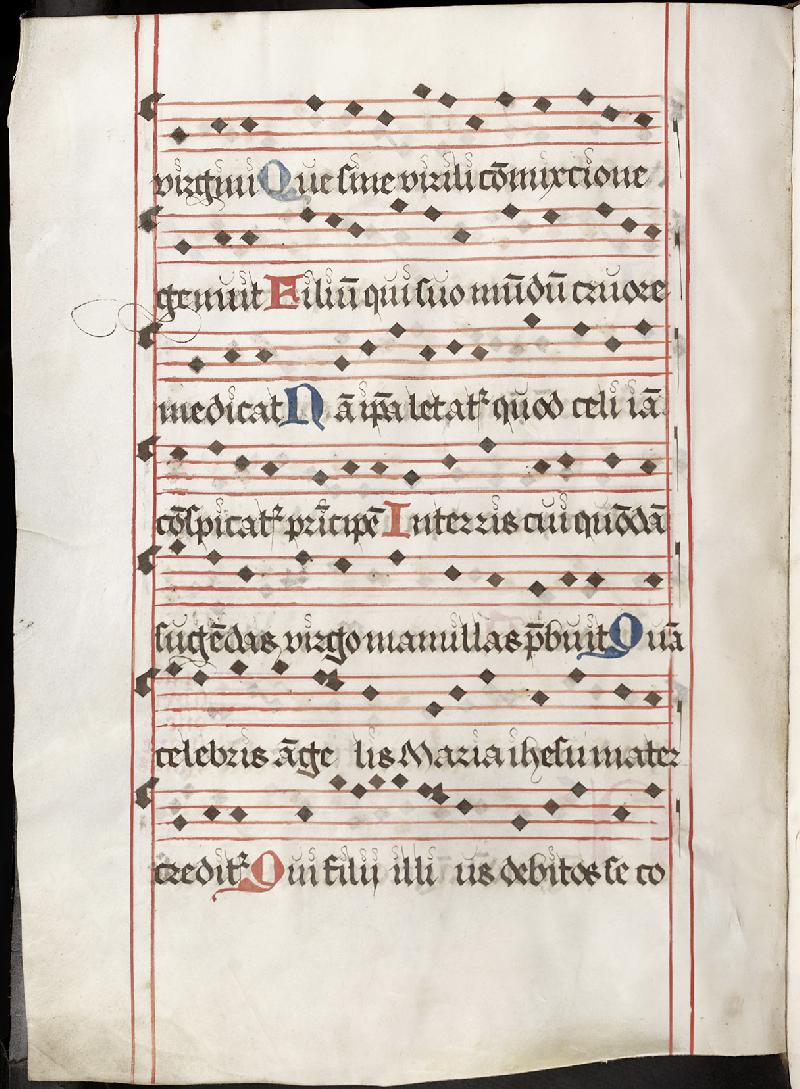 virginū Que sine virili cōmixcione
genuit Filiū qui suo mūdū cruore
medicat Nā ip̄a letat᷑ quod celi iā
cōspicat᷑ prīcipē In terris cui quōdā
sugēdas virgo mamillas p̄buit Quā
celebris āge lis Maria ihesu mater
credit᷑ Qui filij illi us debitos se co